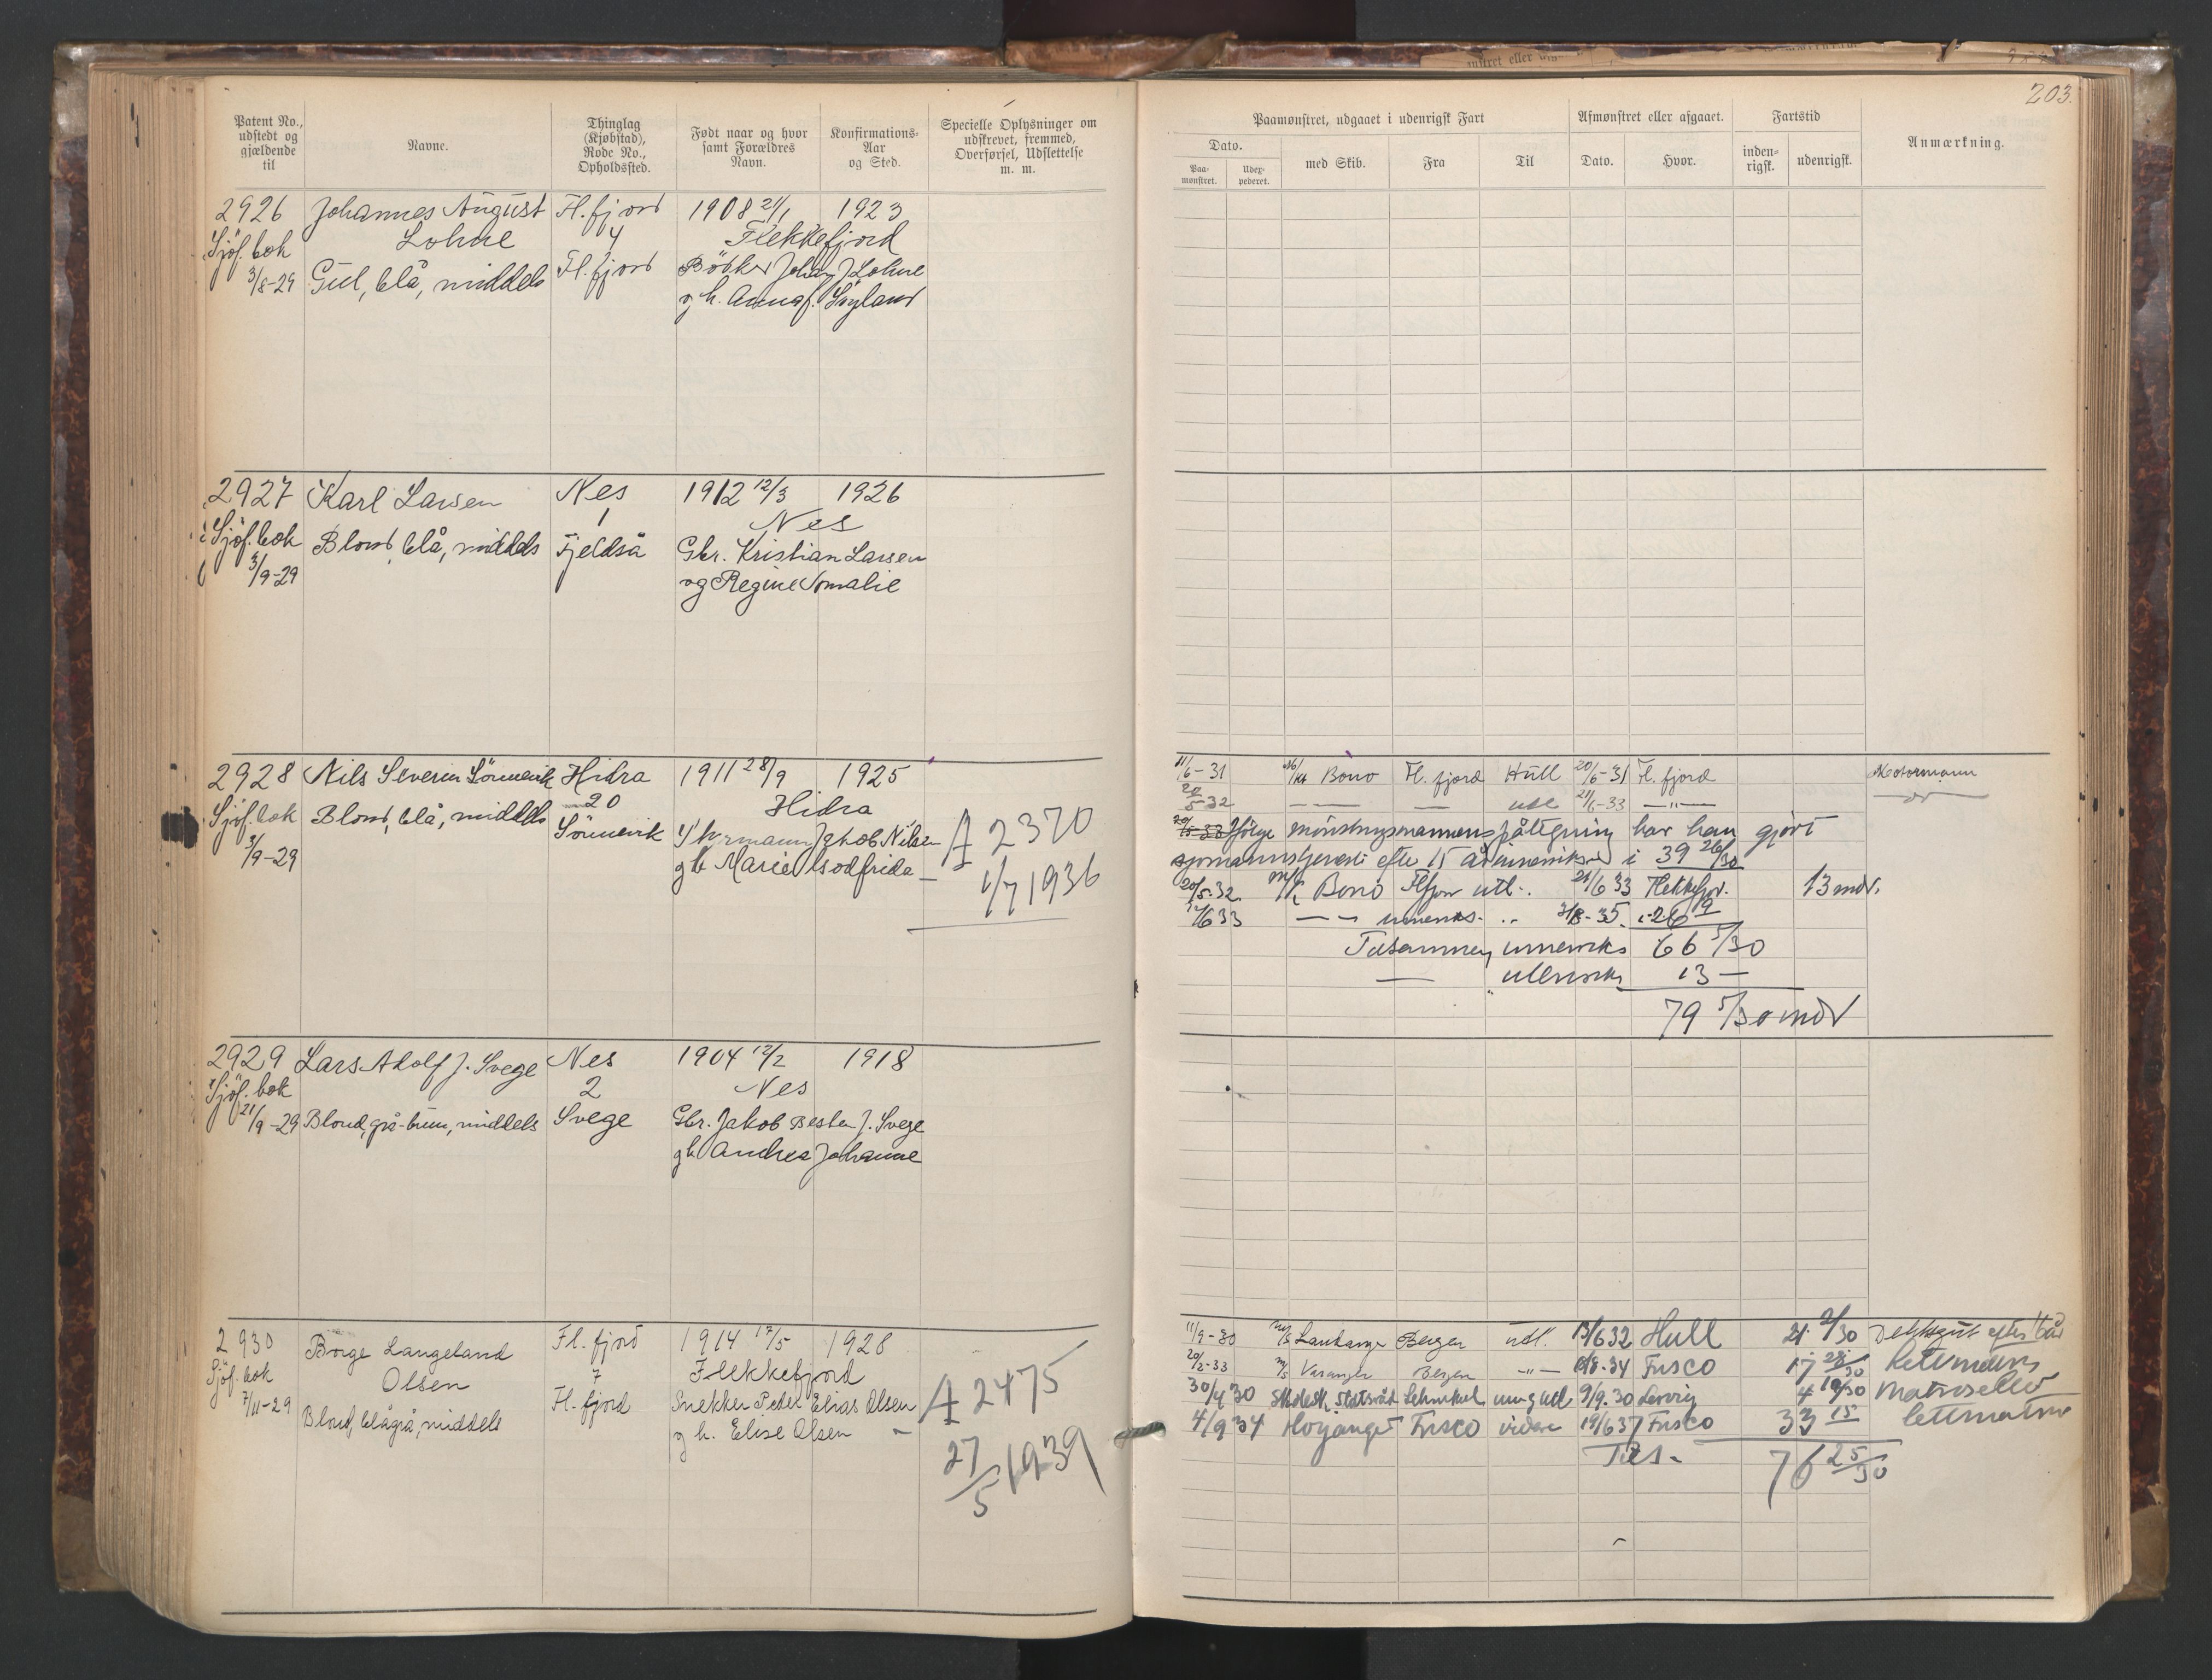 203.
Patent No., udstedt og gjældende til
Navne.
Thinglag (Kjøbstad), Rode No., Opholdssted.
Født naar og hvor samt Forældres Navn.
Konfirmations-Aar og Sted.
Specielle Oplysninger om udskrevet, fremmed, Overførsel, Udslettelse m. m.
Paamønstret, udgaaet i udenrigsk Fart
Afmønstret eller afgaaet.
Fartstid
Anmærkning.
Dato.
Paa-mønstret.
Udex-pederet.
med Skib.
Fra
Til
Dato.
Hvor.
inden-rigsk.
udenrigsk.
2926 Johannes August Fl.fjord 1908 21/1 1923
Sjöf. bok Lohne 4 Flekkefjord
3/8-29 Gul, blå, middels Fl.fjord Bötker Johan J Lohne
g h. Anna f. Söyland
2927 Karl Larsen Nes 1912 12/3 1926
1 Nes
Sjöf. bok Blond, blå, middels Fjeldså Gbr. Kristian Larsen
3/9-29 og Regine Tomalie
2928 Nils Severin Sönnevik Hidra 1911 28/9 1925
20 Hidra
Sjöf. bok Blond, blå, middels Sönnevik Styrmann Jakob Nilsen
3/9-29 g h Marie Godfrida
A 2370
1/7 1936
11/6-31 M/k Bono Fl.fjord Hull 20/6-31 Fl.fjord Motormann
20/5-32 — — — utl 21/6-33 —"—
ifölge mönstringsmannens påtegning har han gjört
sjömannstjeneste efter 15 år innenriks i 39 26/30
20/5-32. M/k Bono Flfjor utl. 21/6 33 Flekkefjor. 13 mdr.
— — innenriks. 31/8-35 26 9
Tilsammen innenriks 66 5/30
— utenriks 13 —
79 5/30 mdr
2929 Lars Adolf J. Svege Nes 1904 12/2 1918
Sjöf. bok 2 Nes
21/9-29 Blond, grå-brun, middels Svege Gbr. Jakob Besten J. Svege
g h Andrea Johanne
2930 Borge Langeland Fl.fjord 1914 17/5 1928
Sjöf. bok Olsen 7 Flekkefjord
7/11-29 Blond, blågrå, middels Fl.fjord Snekker Peder Elias Olsen
g h. Elise Olsen
A 2475
27/5 1939
11/9-30 M/s Bergen utl. 13/6 32 Hull 21 2/30 Dekksgut efter 1 år
20/2-33 M/s Varanger Bergen —"— 8-34 Frisco 17 28/30 lettmatros
30/4 30 Skolesk. Statsråd Lehmkul inn og utl 9/9.30 4 10/30
4/9 34 Hoyanger Frisco videre 19/6 37 Frisco 33 15 lettmatros
Tils. 76 25/30